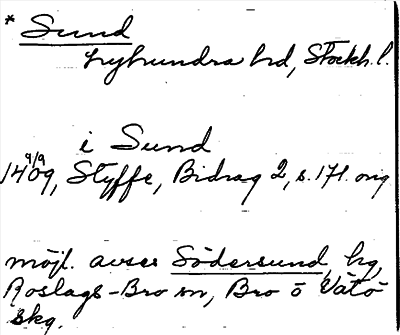 * Sund
Lyhundra hd, Stockh. l.
i Sund
1409 9/9, Styffe, Bidrag 2, s. 171. orig
möjl. avses Södersund, hg,
Roslags-Bro sn, Bro o Vätö
skg.